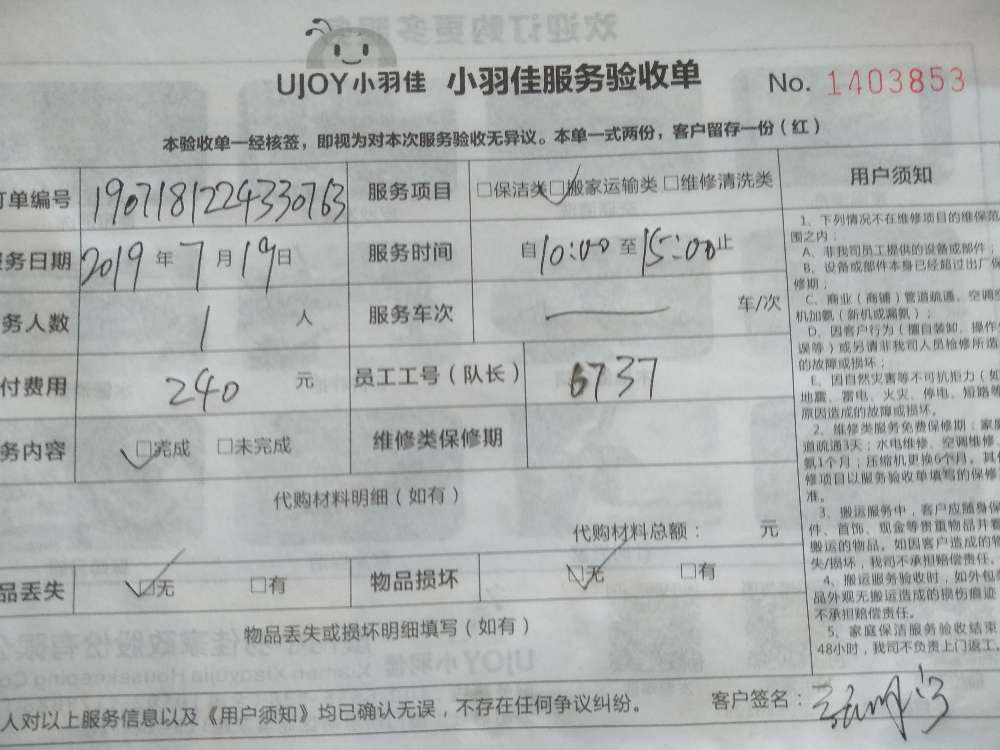 UJOY小羽佳 小羽佳服务验收单 No. 1403853
本验收单一经核签，即视为对本次服务验收无异议。本单一式两份，客户留存一份（红）
订单编号 1907181224330763 服务项目 □保洁类 □搬家运输类 □维修清洗类
务日期 2019 年 7 月 19 日 服务时间 自 10:00 至 15:00 止
务人数 1 人 服务车次 — 车/次
付费用 240 元 员工工号（队长） 6737
务内容 □完成 □未完成 维修类保修期
代购材料明细（如有）
代购材料总额： 元
品丢失 □无 □有 物品损坏 □无 □有
物品丢失或损坏明细填写（如有）
人对以上服务信息以及《用户须知》均已确认无误，不存在任何争议纠纷。 客户签名：
用户须知
1、下列情况不在维修项目的维保范
围之内：
A、非我司员工提供的设备或部件；
B、设备或部件本身已经超过出厂保
修期；
C、商业（商铺）管道疏通、空调
机加氨（新机或漏氨）；
D、因客户行为（擅自装卸、操作
误等）或另请非我司人员检修所造
的故障或损坏；
E、因自然灾害等不可抗拒力（如
地震、雷电、火灾、停电、短路等
原因造成的故障或损坏。
2、维修类服务免费保修期：家
道疏通3天；水电维修、空调维修、
氨1个月；压缩机更换6个月。其
修项目以服务验收单填写的保修
准。
3、搬运服务中，客户应随身保
件、首饰、现金等贵重物品并
搬运的物品。如因客户造成的物
失/损坏，我司不承担赔偿责任。
4、搬运服务验收时，如外包
品外观无搬运造成的损伤痕迹
不承担赔偿责任。
5、家庭保洁服务验收结束
48小时，我司不负责上门返工。